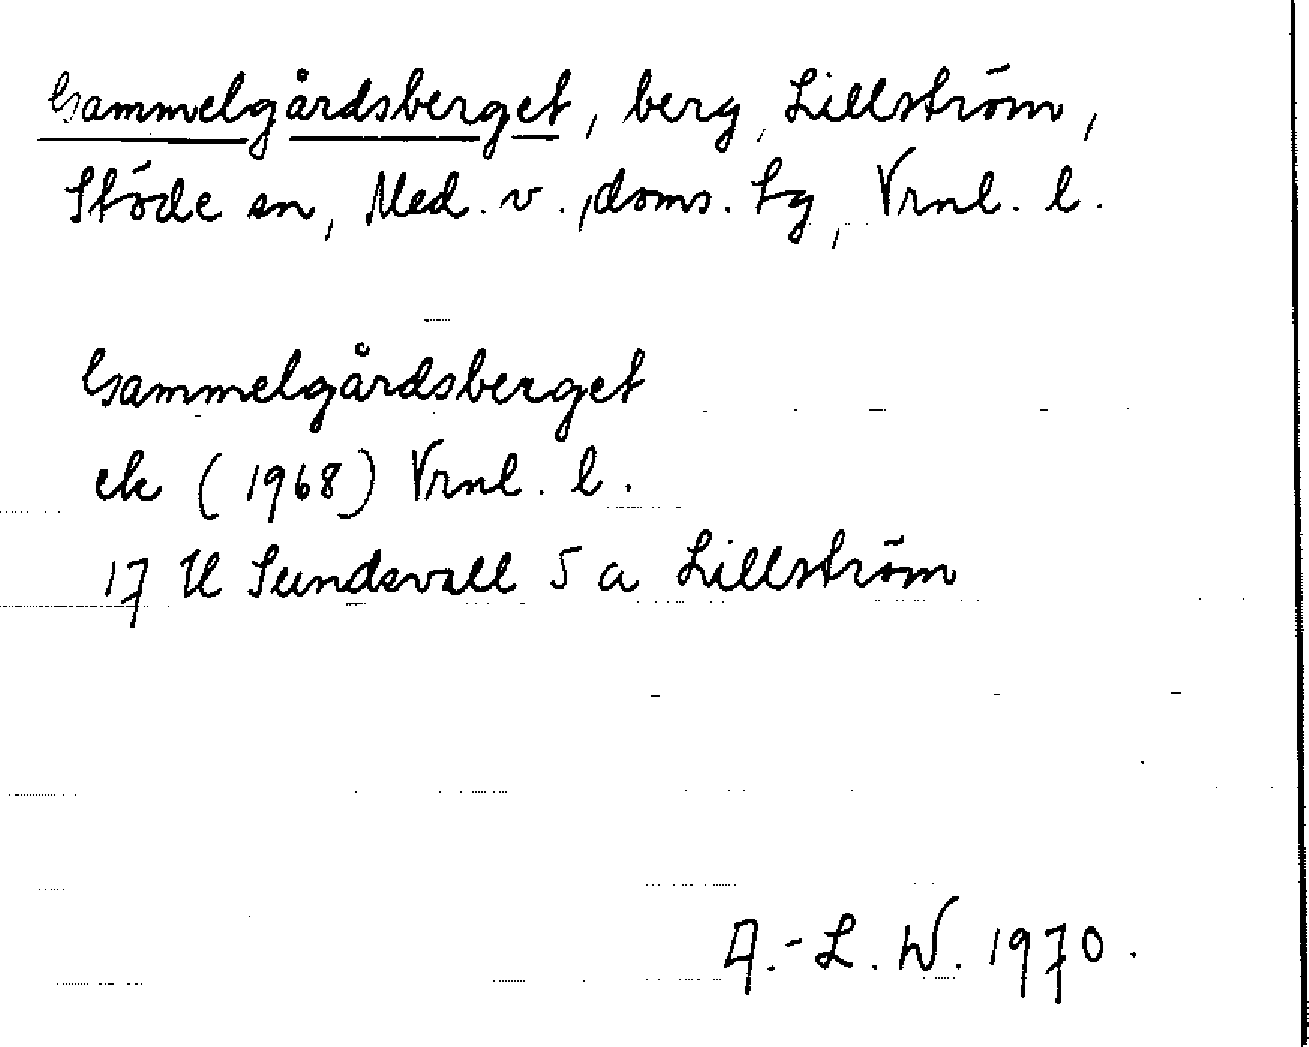 Gammelgårdsberget, berg, Lillström,
Stöde sn, Med. v., doms. tg, Vrnl. l.
Gammelgårdsberget
ek (1968) Vrnl. l.
17 H Sundsvall 5 a Lillström
A.-L. W. 1970.